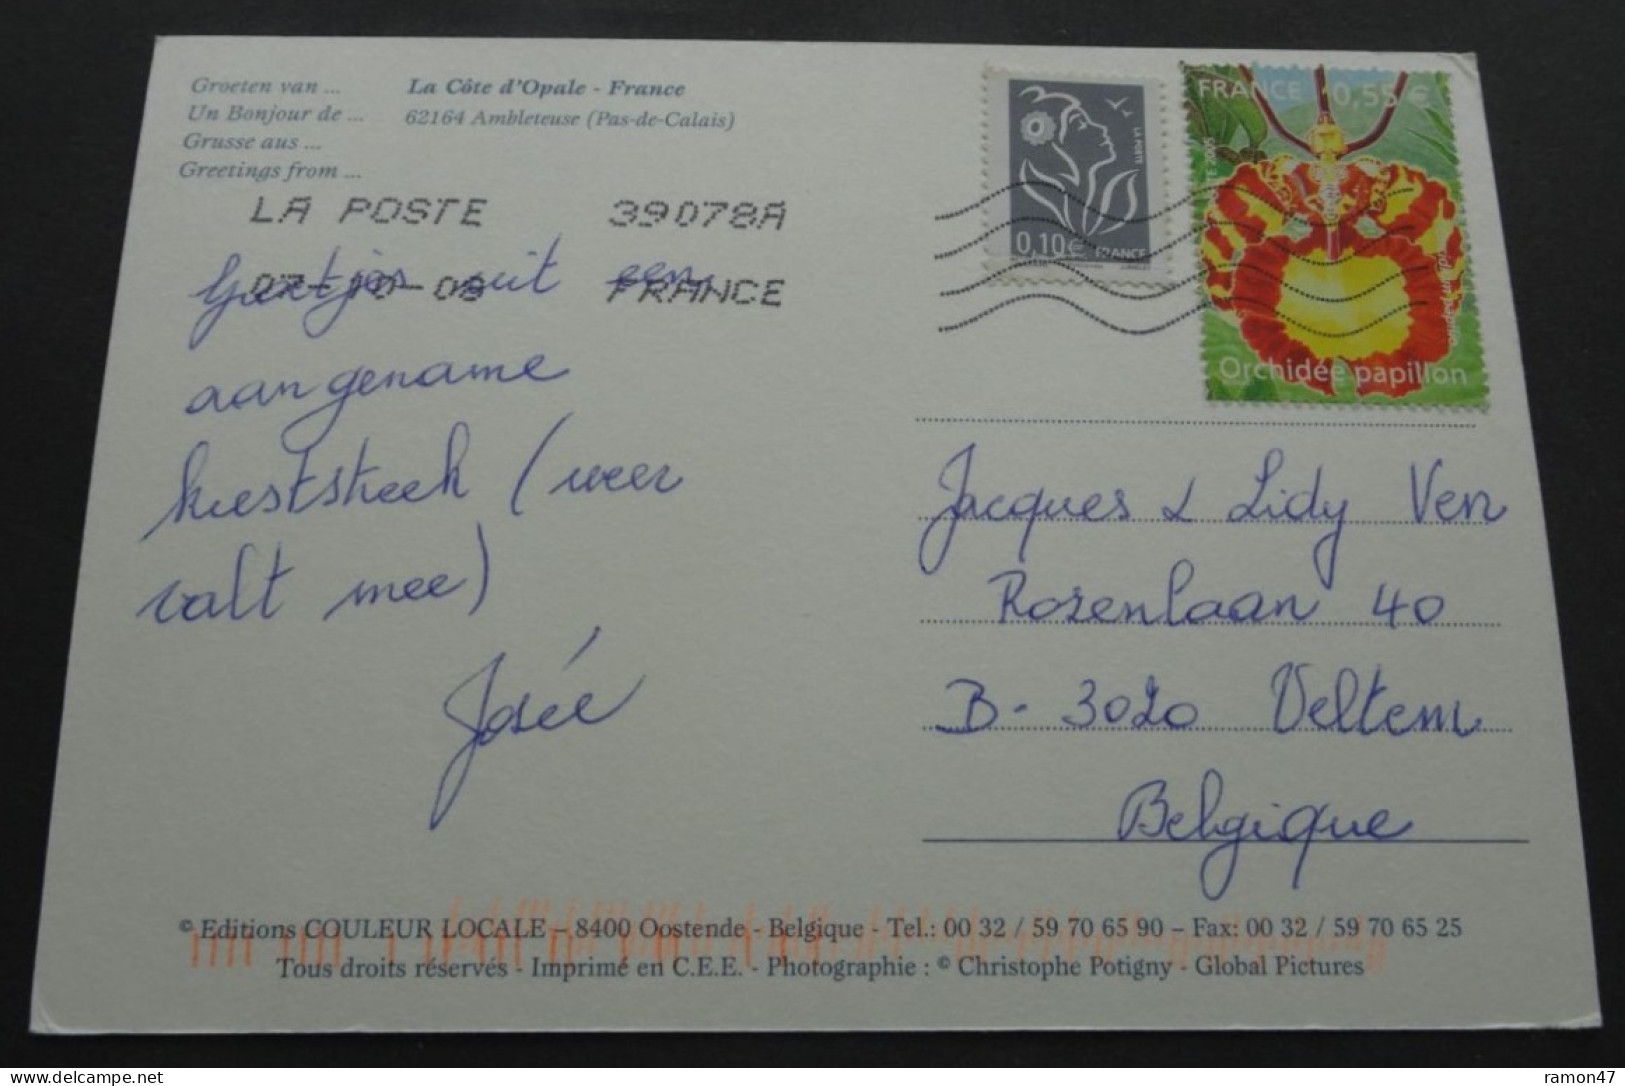 Groeten van ...
Un Bonjour de ...
Grusse aus ...
Greetings from ...
La Côte d'Opale - France
62164 Ambleteuse (Pas-de-Calais)
LA POSTE 39078A
07-10-08 FRANCE
Groetjes uit een
aangename
kuststreek (weer
valt mee)
Josée
LA POSTE
0,10€ FRANCE
FRANCE 0,55 €
Orchidée papillon
Jacques & Lidy Ven
Rozenlaan 40
B - 3020 Veltem
Belgique
© Editions COULEUR LOCALE – 8400 Oostende - Belgique - Tel.: 00 32 / 59 70 65 90 – Fax: 00 32 / 59 70 65 25
Tous droits réservés - Imprimé en C.E.E. - Photographie : © Christophe Potigny - Global Pictures
delcampe.net
ramon47